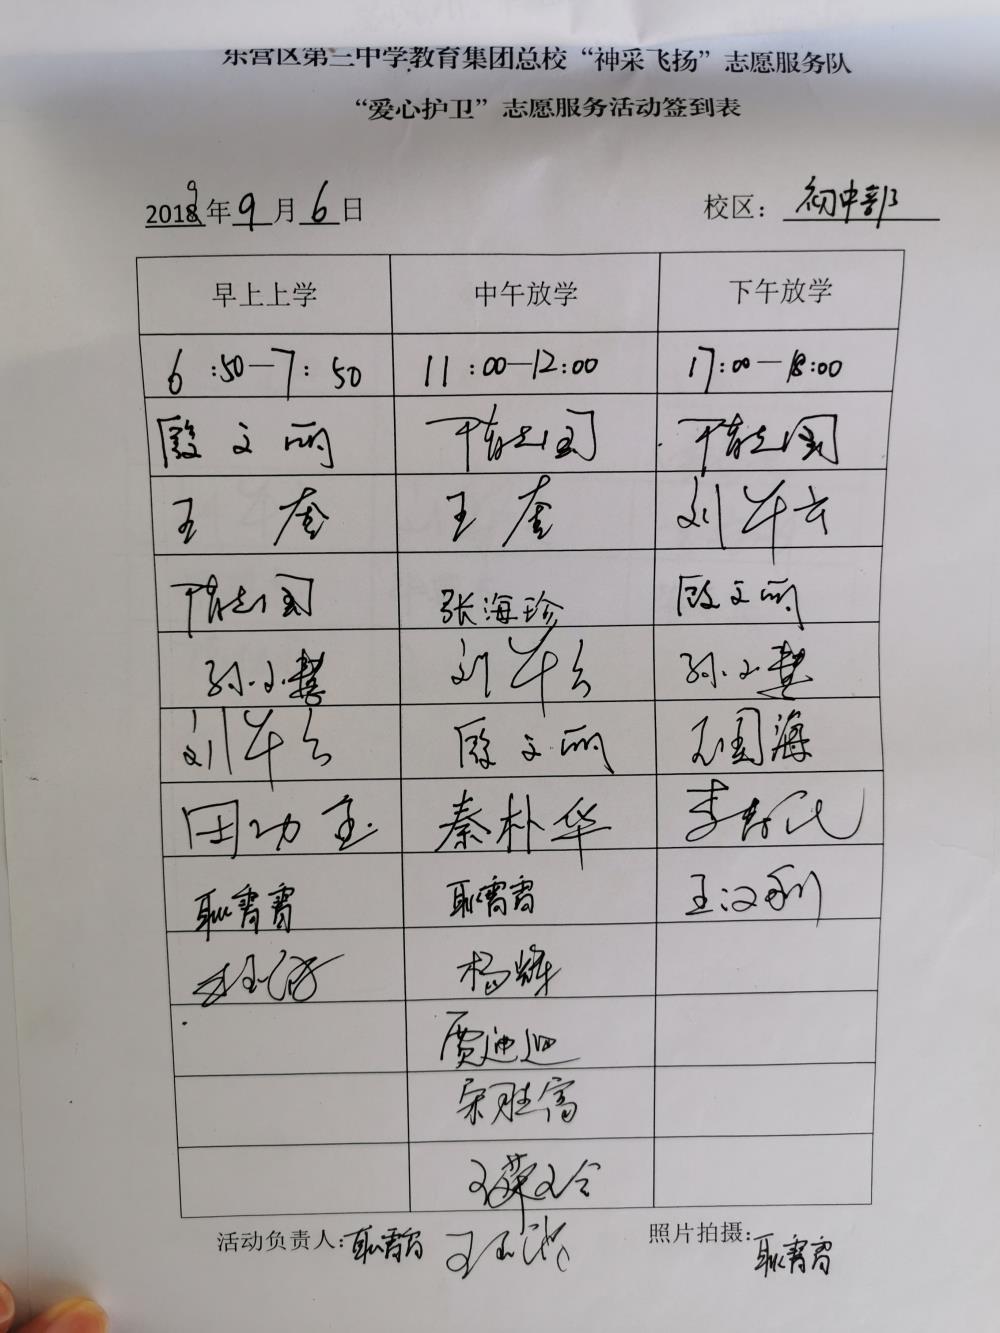 东营区第三中学教育集团总校“神采飞扬”志愿服务队
“爱心护卫”志愿服务活动签到表
2019年9月6日 校区：初中部
早上上学 中午放学 下午放学
6:50—7:50 11:00—12:00 17:00—18:00
殷文丽
王奎 王奎 刘华云
张海珍 殷文丽
孙小慧 刘华云 孙小慧
刘华云 殷文丽 石国海
田功玉 秦朴华
耿霄霄 耿霄霄 王汉利
杨辉
贾迪迎
宋胜富
活动负责人：耿霄霄 照片拍摄：耿霄霄